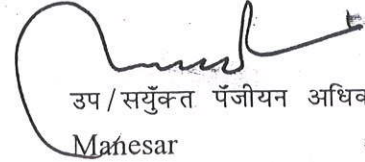 उप / सयुँक्त पँजीयन अधिक
Manesar